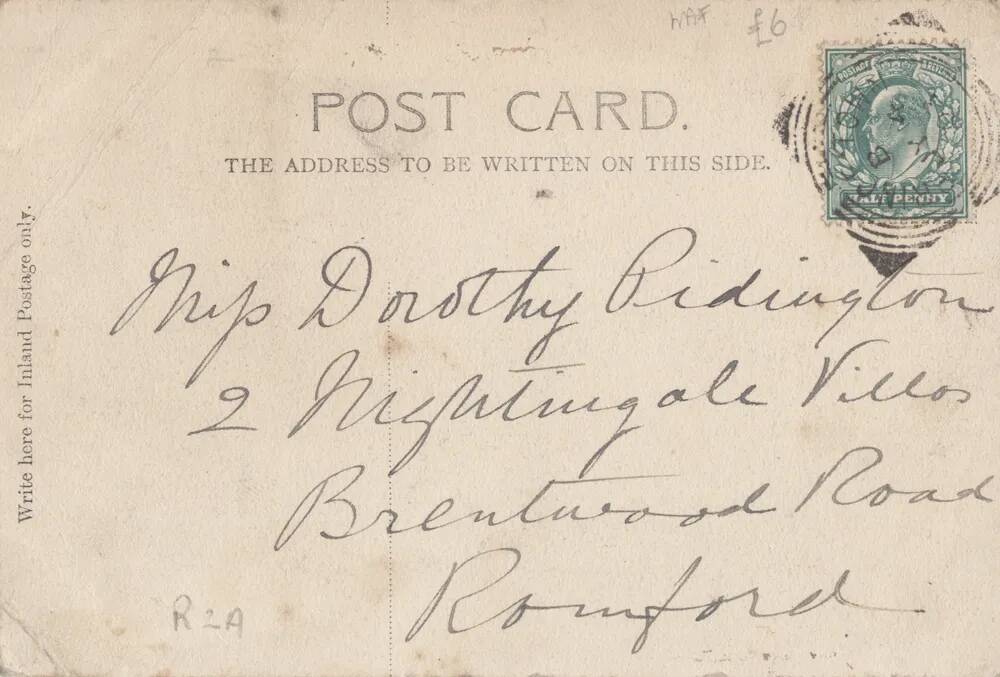 £6
POST CARD.
THE ADDRESS TO BE WRITTEN ON THIS SIDE.
POSTAGE
HALFPENNY
Write here for Inland Postage only.
Miss Dorothy Ridington
2 Nightingale Villas
Brentwood Road
Romford
R2A